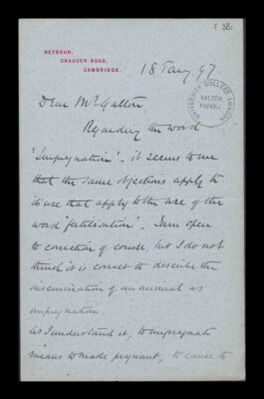 f 38r
SEYMOUR,
CHAUCER ROAD,
CAMBRIDGE.
18 Jany. 97
UNIVERSITY COLLEGE LONDON
GALTON
PAPERS
Dear Mr Galton,
Regarding the word
"Impregnation". it seems to me
that the same objections apply to
its use that apply to the use of the
word "fertilisation". I am open
to correction of course, but I do not
think it is correct to describe the
insemination of an animal as
impregnation.
As I understand it, to impregnate
means to made pregnant, to cause to